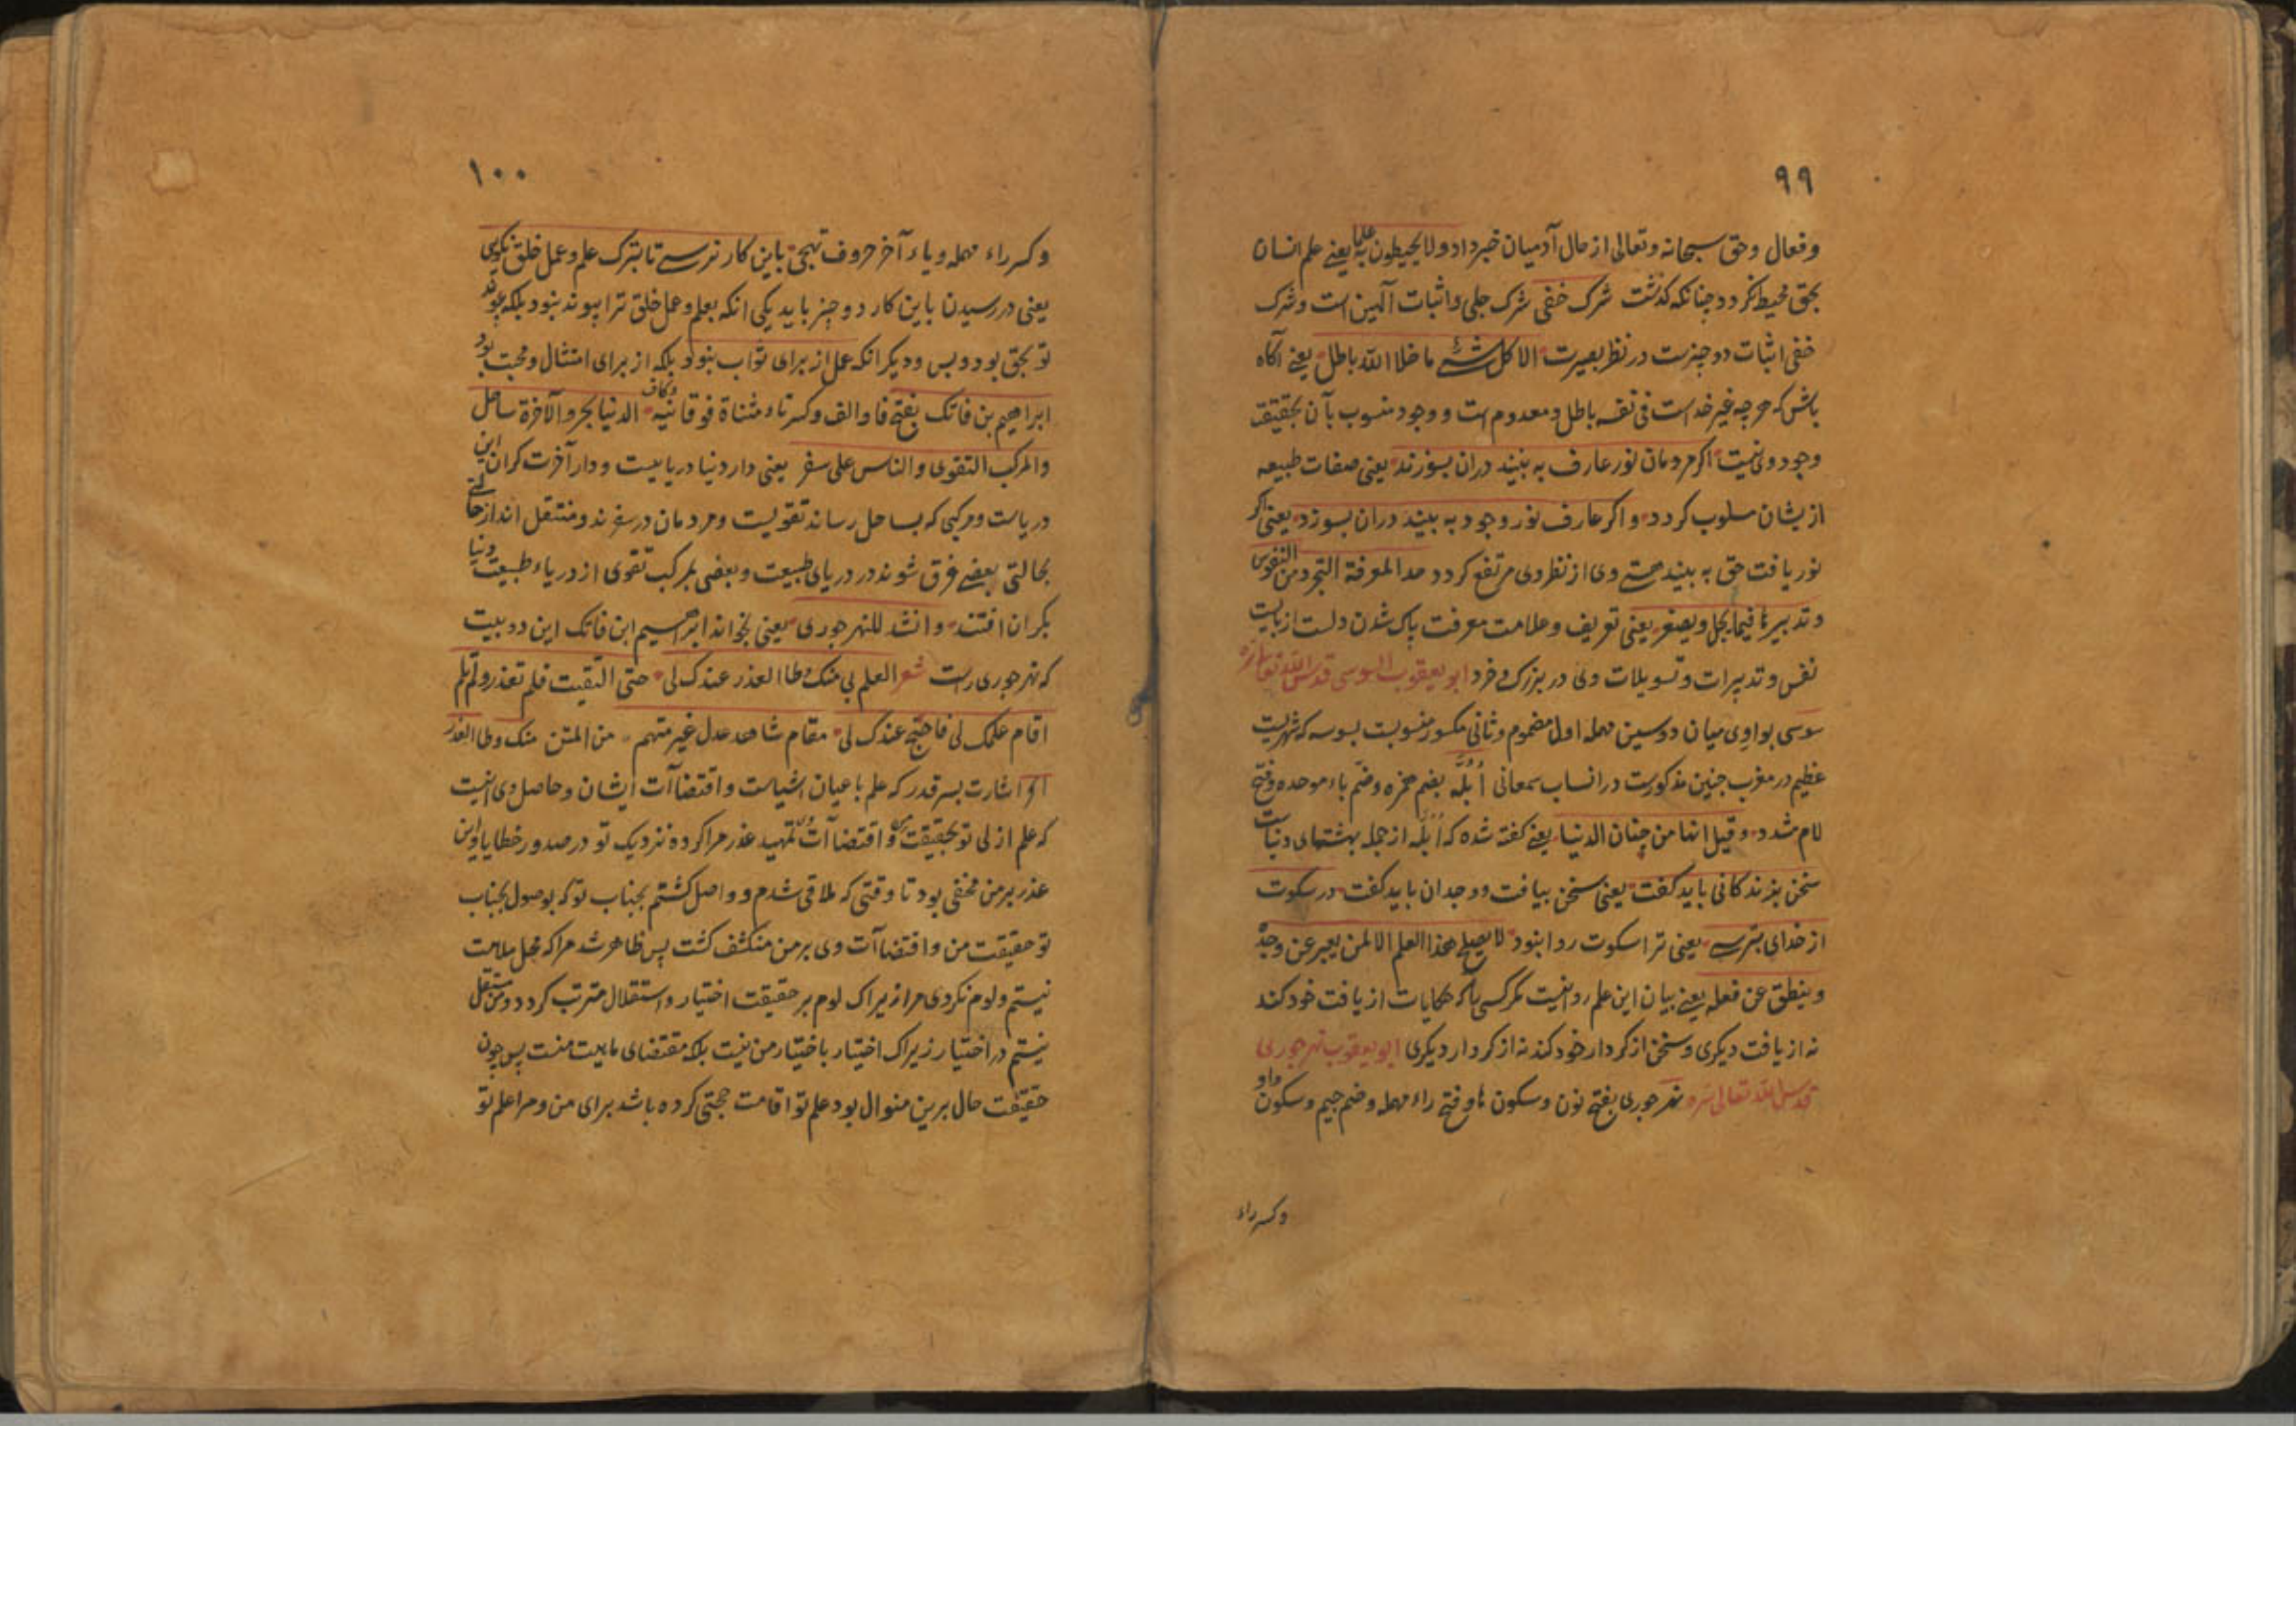 ۹۹
وفعال وحق سبحانه وتعالی از حال آدمیان خبر داد ولا یحیطون به علما یعنی علم انسان
بحق محیط نکردد چنانکه کذشت شرک خفی شرک جلی و اثبات آلهین است وشرک
خفی اثبات دو چیزست در نظر بصیرت الا کل شئ ما خلا الله باطل یعنی آکاه
باش که هر چه غیر خداست فی نفسه باطل ومعدوم است و وجود منسوب بآن بحقیقت
وجود وی نیست اکر مردمان نور عارف به بینند در ان بسوزند یعنی صفات طبیعه
از یشان مسلوب کردد و اکر عارف نور وجود به بیند دران بسوزد یعنی اکر
نور یافت حق به بیند هستی وی از نظر وی مرتفع کردد حد المعرفة التجرد من النفوس
وتدبیرها فیما یجل ویصغر یعنی تعریف وعلامت معرفت پاک شدن دلست از بایست
نفس وتدبیرات وتسویلات وی در بزرک وخرد ابو یعقوب السوسی قدس الله تعالی سره
سوسی بواوی میان دو سین مهمله اول مضموم وثانی مکسور منسوبست بسوسه که شهریست
عظیم در مغرب چنین مذکورست در انساب سمعانی اُبُلَّه بضم همزه وضم باء موحده وفتح
لام مشدد وقیل انها من جنان الدنیا یعنی کفته شده که اُبُلَّه از جمله بهشتهای دنیاست
سخن بزندکانی باید کفت یعنی سخن بیافت ووجدان باید کفت در سکوت
از خدای بترسی یعنی ترا سکوت روا بنود لا یصلح هذا العلم الا لمن یعبر عن وجده
وینطق عن فعله یعنی بیان این علم روا نیست مکر کسی را که حکایات از یافت خود کند
نه از یافت دیکری وسخن از کردار خود کند نه از کردار دیکری ابو یعقوب نهرجوری
قدس الله تعالی سره نهرجوری بفتح نون وسکون ها وفتح راء مهمله وضم جیم وسکون واو
وکسر راء
۱۰۰
وکسر راء مهمله ویاء آخر حروف تهجی باین کار نرسی تا بترک علم وعمل خلق نکوی
یعنی در رسیدن باین کار دو چیز باید یکی انکه بعلم وعمل خلق ترا پیوند بنود بلکه پیوند
تو بحق بود وبس ودیکر انکه عمل از برای ثواب بنود بلکه از برای امتثال ومحبت بود
ابراهیم بن فاتک بفتح فا والف وکسر تاء مثناة فوقانیه وکاف الدنیا بحر والآخرة ساحل
والمرکب التقوی والناس علی سفر یعنی دار دنیا دریاییست ودار آخرت کران این
دریاست ومرکبی که بساحل رساند تقویست ومردمان در سفرند ومنتقل اند از حالتی
بحالتی بعضی غرق شوند در دریای طبیعت وبعضی بمرکب تقوی از دریاء طبیعت دنیا
بکران افتند وانشد للنهرجوری یعنی بخواند ابراهیم ابن فاتک این دو بیت
که نهرجوری راست شعر العلم بی منک وطا العذر عندک لی حتی التقیت فلم تعذر ولم تلم
اقام علمک لی فاحتج عندک لی مقام شاهد عدل غیر متهم من المتن منک وطا العذر
الخ اشارت بسر قدر که علم باعیان اشیاست واقتضاآت ایشان وحاصل وی انیست
که علم ازلی تو بحقیقت من واقتضاآت وی تمهید عذر مرا کرده نزدیک تو در صدور خطایا واین
عذر بر من مخفی بود تا وقتی که ملاقی شدم وواصل کشتم بجناب تو که بوصول بجناب
تو حقیقت من واقتضاآت وی بر من منکشف کشت پس ظاهر شد مرا که محل ملامت
نیستم ولوم نکردی مرا زیراک لوم بر حقیقت اختیار واستقلال مترتب کردد ومن مستقل
نیستم در اختیار زیراک اختیار باختیار من نیست بلکه مقتضای ماهیت منست پس چون
حقیقت حال برین منوال بود علم تو اقامت حجتی کرده باشد برای من ومرا علم تو